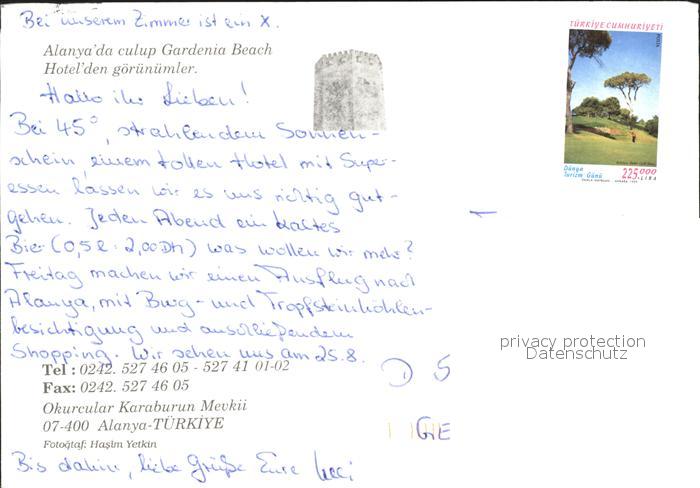 Bei unserem Zimmer ist ein X.
Alanya'da culup Gardenia Beach
Hotel'den görünümler.
Hallo ihr Lieben!
Bei 45°, strahlendem Sonnen-
schein, einem tollen Hotel mit Super-
essen lassen wir es uns richtig gut-
gehen. Jeden Abend ein kaltes
Bier (0,5 l : 2,00 DM) was wollen wir mehr?
Freitag machen wir einen Ausflug nach
Alanya, mit Burg- und Tropfsteinhöhlen-
besichtigung und anschließendem
Shopping. Wir sehen uns am 25.8.
Tel : 0242. 527 46 05 - 527 41 01-02
Fax: 0242. 527 46 05
Okurcular Karaburun Mevkii
07-400 Alanya-TÜRKİYE
Fotoğtaf: Haşim Yetkin
Bis dahin, liebe Grüße Eure
TÜRKİYE CUMHURİYETİ
POSTA
Dünya
Turizm Günü
225.000
LİRA
privacy protection
Datenschutz
D 5
GE